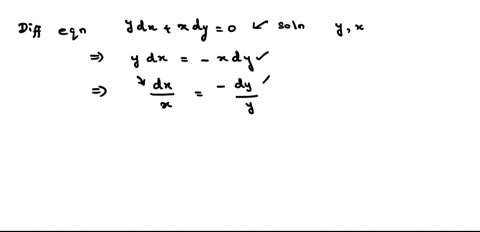 Diff eqn y dx + x dy = 0 ↙ soln y, x
⇒ y dx = - x dy ✓
⇒ dx/x = - dy/y